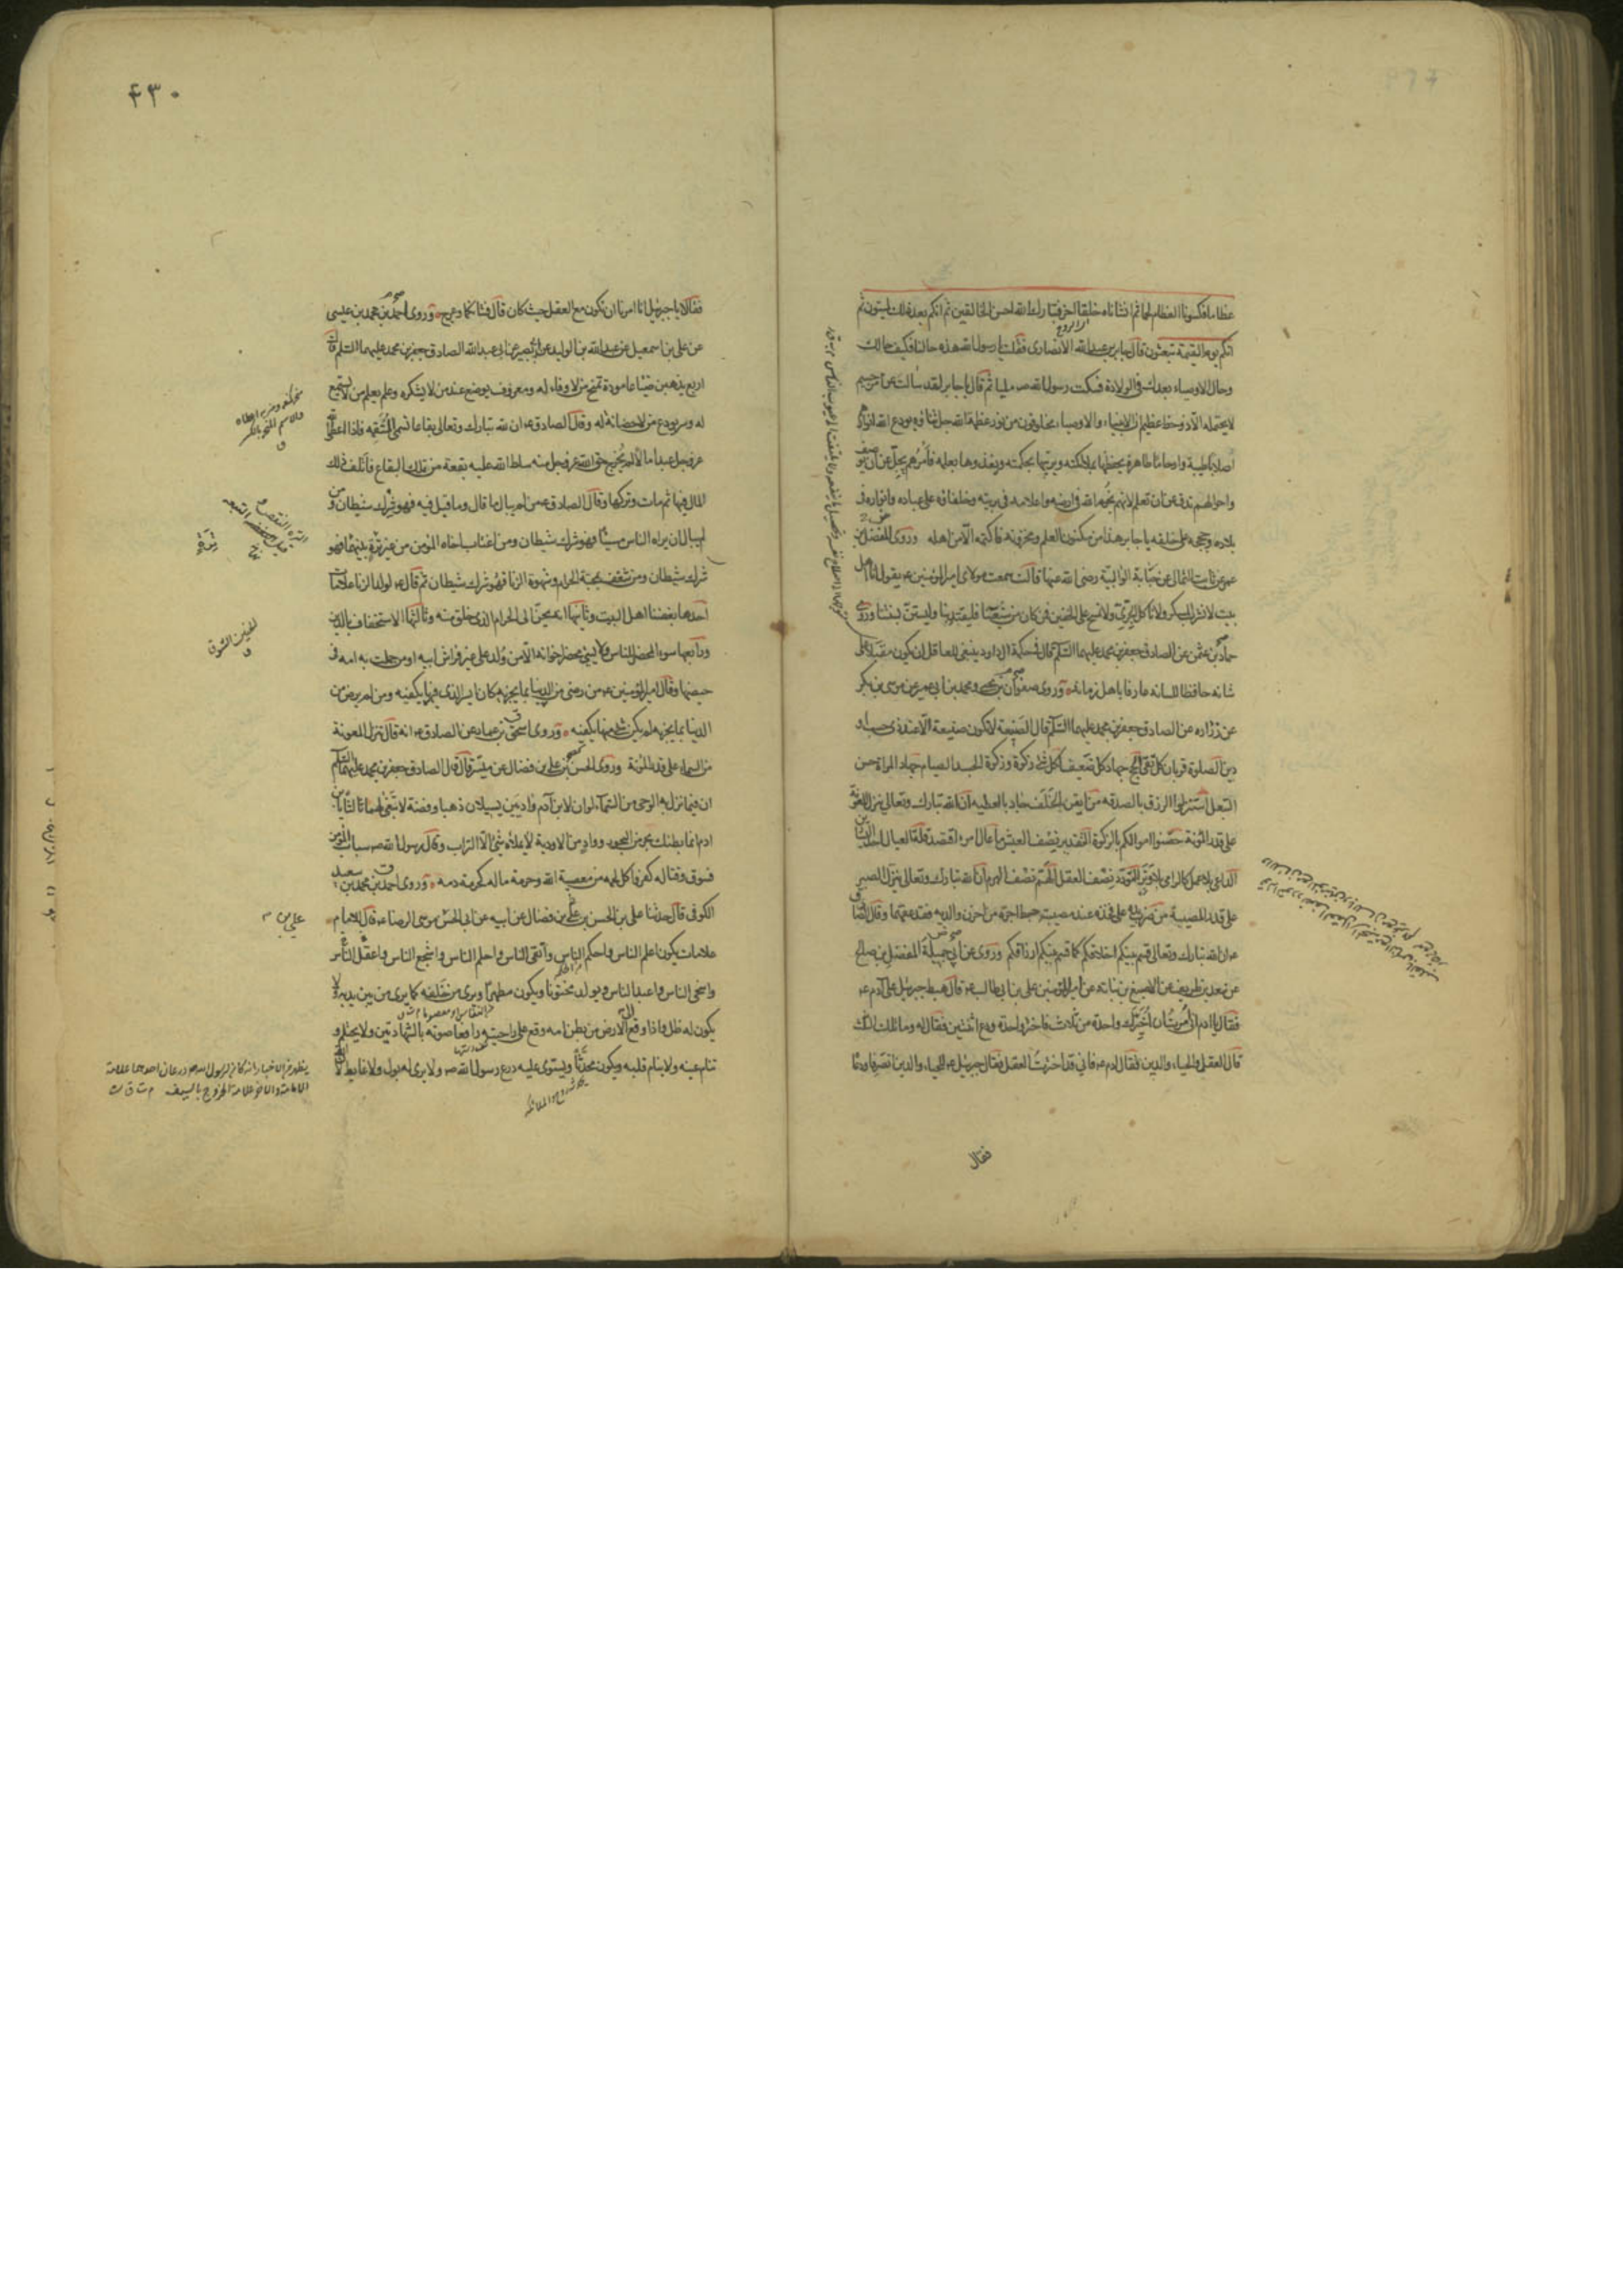 عظاما فكسونا العظام لحما ثم انشاناه خلقا اخر فتبارك الله احسن الخالقين ثم انكم بعد ذلك لميتون ثم
انكم يوم القيمة تبعثون قال جابر بن عبد الله الانصارى فقلت يا رسول الله هذه حالنا فكيف حالك
وحال الاوصياء بعدك فى الولادة فسكت رسول الله ص مليا ثم قال يا جابر لقد سالت عن امر جسيم
لا يحتمله الا ذو حظ عظيم ان الانبياء والاوصياء مخلوقون من نور عظمة الله جل ثناؤه يودع الله انوارهم
اصلابا طيبة وارحاما طاهرة يحفظها بملائكته ويربيها بحكمته ويغذوها بعلمه فامرهم يجل عن ان يوصف
واحوالهم تدق عن ان تعلم لانهم نجوم الله فى ارضه واعلامه فى بريته وخلفاؤه على عباده وانواره فى
بلاده وحججه على خلقه يا جابر هذا من مكنون العلم ومخزونه فاكتمه الا من اهله وروى المفضل بن
عمر عن ثابت الثمالى عن حبابة الوالبية رضى الله عنها قالت سمعت مولاى امير المؤمنين ع يقول انا اهل
بيت لا نشرب المسكر ولا ناكل الجرى ولا نمسح على الخفين فمن كان من شيعتنا فليقتد بنا وليستن بسنتنا وروى
حماد بن عثمن عن الصادق جعفر بن محمد عليهما السلم قال فى حكمة ال داود ينبغى للعاقل ان يكون مقبلا على
شانه حافظا للسانه عارفا باهل زمانه وروى صفوان بن يحيى ومحمد بن ابى عمير عن موسى بن بكر
عن زراره عن الصادق جعفر بن محمد عليهما السلم قال الصنيعة لا تكون صنيعة الا عند ذى حسب او
دين الصلوة قربان كل تقى الحج جهاد كل ضعيف لكل شئ زكوة وزكوة الجسد الصيام جهاد المراة حسن
التبعل استنزلوا الرزق بالصدقه من ايقن بالخلف جاد بالعطيه ان الله تبارك وتعالى ينزل المعونة
على قدر المؤنة حصنوا اموالكم بالزكوة التقدير نصف العيش ما عال امرء اقتصد قلة العيال احد اليسارين
الداعى بلا عمل كالرامى بلا وتر التودد نصف العقل الهم نصف الهرم ان الله تبارك وتعالى ينزل الصبر
على قدر المصيبة من ضرب يده على فخذه عند مصيبته حبط اجره من احزن والديه فقد عقهما وقال الصادق
ع ان الله تبارك وتعالى قسم بينكم اخلاقكم كما قسم بينكم ارزاقكم وروى عن ابى جميلة المفضل بن صالح
عن سعد بن طريف عن الاصبغ بن نباته عن امير المؤمنين على بن ابى طالب ع قال هبط جبرئيل على آدم ع
فقال يا ادم انى امرت ان اخيرك واحدة من ثلاث فاختر واحدة ودع اثنتين فقال له وما تلك الثلث
قال العقل والحياء والدين فقال ادم ع فانى قد اخترت العقل فقال جبرئيل ع للحياء والدين انصرفا ودعاه
فقال
٤٣٠
فقالا يا جبرئيل انا امرنا ان نكون مع العقل حيث كان قال فشانكما وعرج وروى احمد بن محمد بن عيسى
عن على بن اسمعيل عن عبد الله بن الوليد عن ابى بصير عن ابى عبد الله الصادق جعفر بن محمد عليهما السلم قال
اربع يذهبن ضياعا مودة تمنح من لا وفاء له ومعروف يوضع عند من لا يشكره وعلم يعلم من لا يستمع
له وسر يودع من لا حضانة له وقال الصادق ع ان لله تبارك وتعالى بقاعا تسمى المنتقمة فاذا اعطى الله
عز وجل عبدا مالا لم يخرج حق الله عز وجل منه سلط الله عليه بقعة من تلك البقاع فاتلف ذلك
المال فيها ثم مات وتركها وقال الصادق ع من لم يبال ما قال وما قيل فيه فهو شرك شيطان ومن
لم يبال ان يراه الناس مسيئا فهو شرك شيطان ومن اغتاب اخاه المؤمن من غير ترة بينهما فهو
شرك شيطان ومن شغف بمحبة الحرام وشهوة الزنا فهو شرك شيطان ثم قال ع لولد الزنا علامات
احدها بغضنا اهل البيت وثانيها انه يحن الى الحرام الذى خلق منه وثالثها الاستخفاف بالدين
ورابعها سوء المحضر للناس ولا يسئ محضر اخوانه الا من ولد على غير فراش ابيه او من حملت به امه فى
حيضها وقال امير المؤمنين ع من رضى من الدنيا بما يجزيه كان ايسر الذى فيها يكفيه ومن لم يرض من
الدنيا بما يجزيه لم يكن شئ منها يكفيه وروى اسحق بن عمار عن الصادق ع انه قال تنزل المعونة
من السماء على قدر المؤنة وروى الحسن بن على بن فضال عن ميسر قال قال الصادق جعفر بن محمد عليهما السلم
ان فيما نزل به الوحى من السماء لو ان لابن آدم واديين يسيلان ذهبا وفضة لابتغى لهما ثالثا يا بن
ادم انما بطنك بحر من البحور وواد من الاودية لا يملاه شئ الا التراب وقال رسول الله ص سباب المؤمن
فسوق وقتاله كفر واكل لحمه من معصية الله وحرمة ماله كحرمة دمه وروى احمد بن محمد بن سعيد
الكوفى قال حدثنا على بن الحسن بن على بن فضال عن ابيه عن ابى الحسن موسى الرضا ع قال للامام
علامات يكون اعلم الناس واحكم الناس واتقى الناس واحلم الناس واشجع الناس واعقل الناس
واسخى الناس واعبد الناس ويولد مختونا ويكون مطهرا ويرى من خلفه كما يرى من بين يديه ولا
يكون له ظل واذا وقع الى الارض من بطن امه وقع على راحتيه رافعا صوته بالشهادتين ولا يحتلم و
تنام عينه ولا ينام قلبه ويكون محدثا ويستوى عليه درع رسول الله ص ولا يرى له بول ولا غايط لان الله
على بن م
يظهر من الاخبار انه كان لرسول الله ص درعان احدهما علامة
الامامة والاخر علامة الخروج بالسيف م ت ق